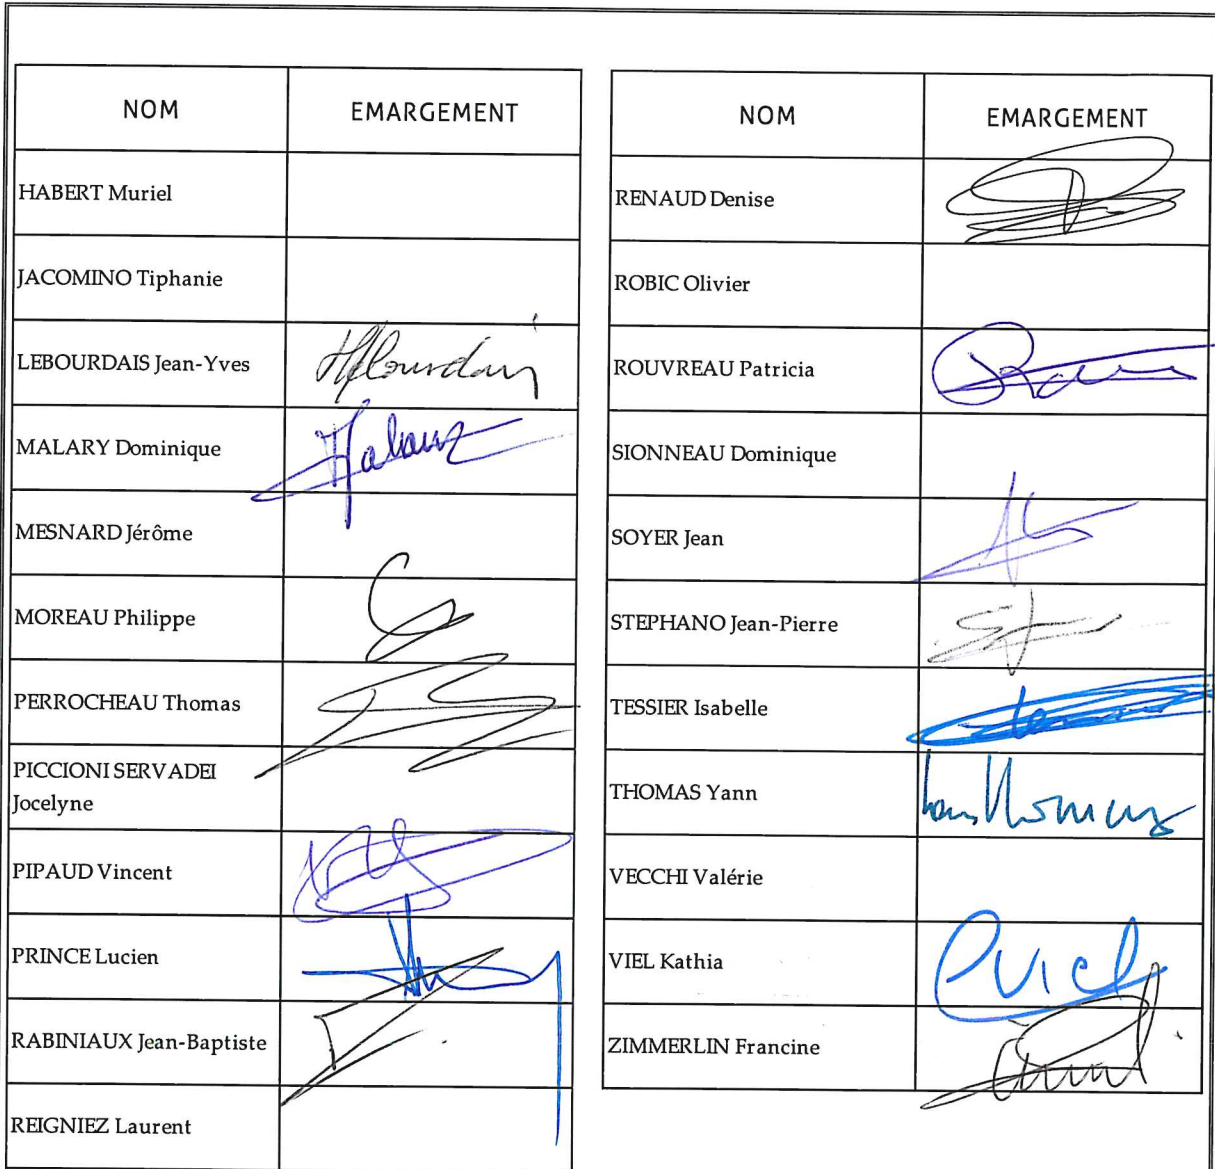 NOM EMARGEMENT
HABERT Muriel
JACOMINO Tiphanie
LEBOURDAIS Jean-Yves
MALARY Dominique
MESNARD Jérôme
MOREAU Philippe
PERROCHEAU Thomas
PICCIONI SERVADEI
Jocelyne
PIPAUD Vincent
PRINCE Lucien
RABINIAUX Jean-Baptiste
REIGNIEZ Laurent
NOM EMARGEMENT
RENAUD Denise
ROBIC Olivier
ROUVREAU Patricia
SIONNEAU Dominique
SOYER Jean
STEPHANO Jean-Pierre
TESSIER Isabelle
THOMAS Yann
VECCHI Valérie
VIEL Kathia
ZIMMERLIN Francine